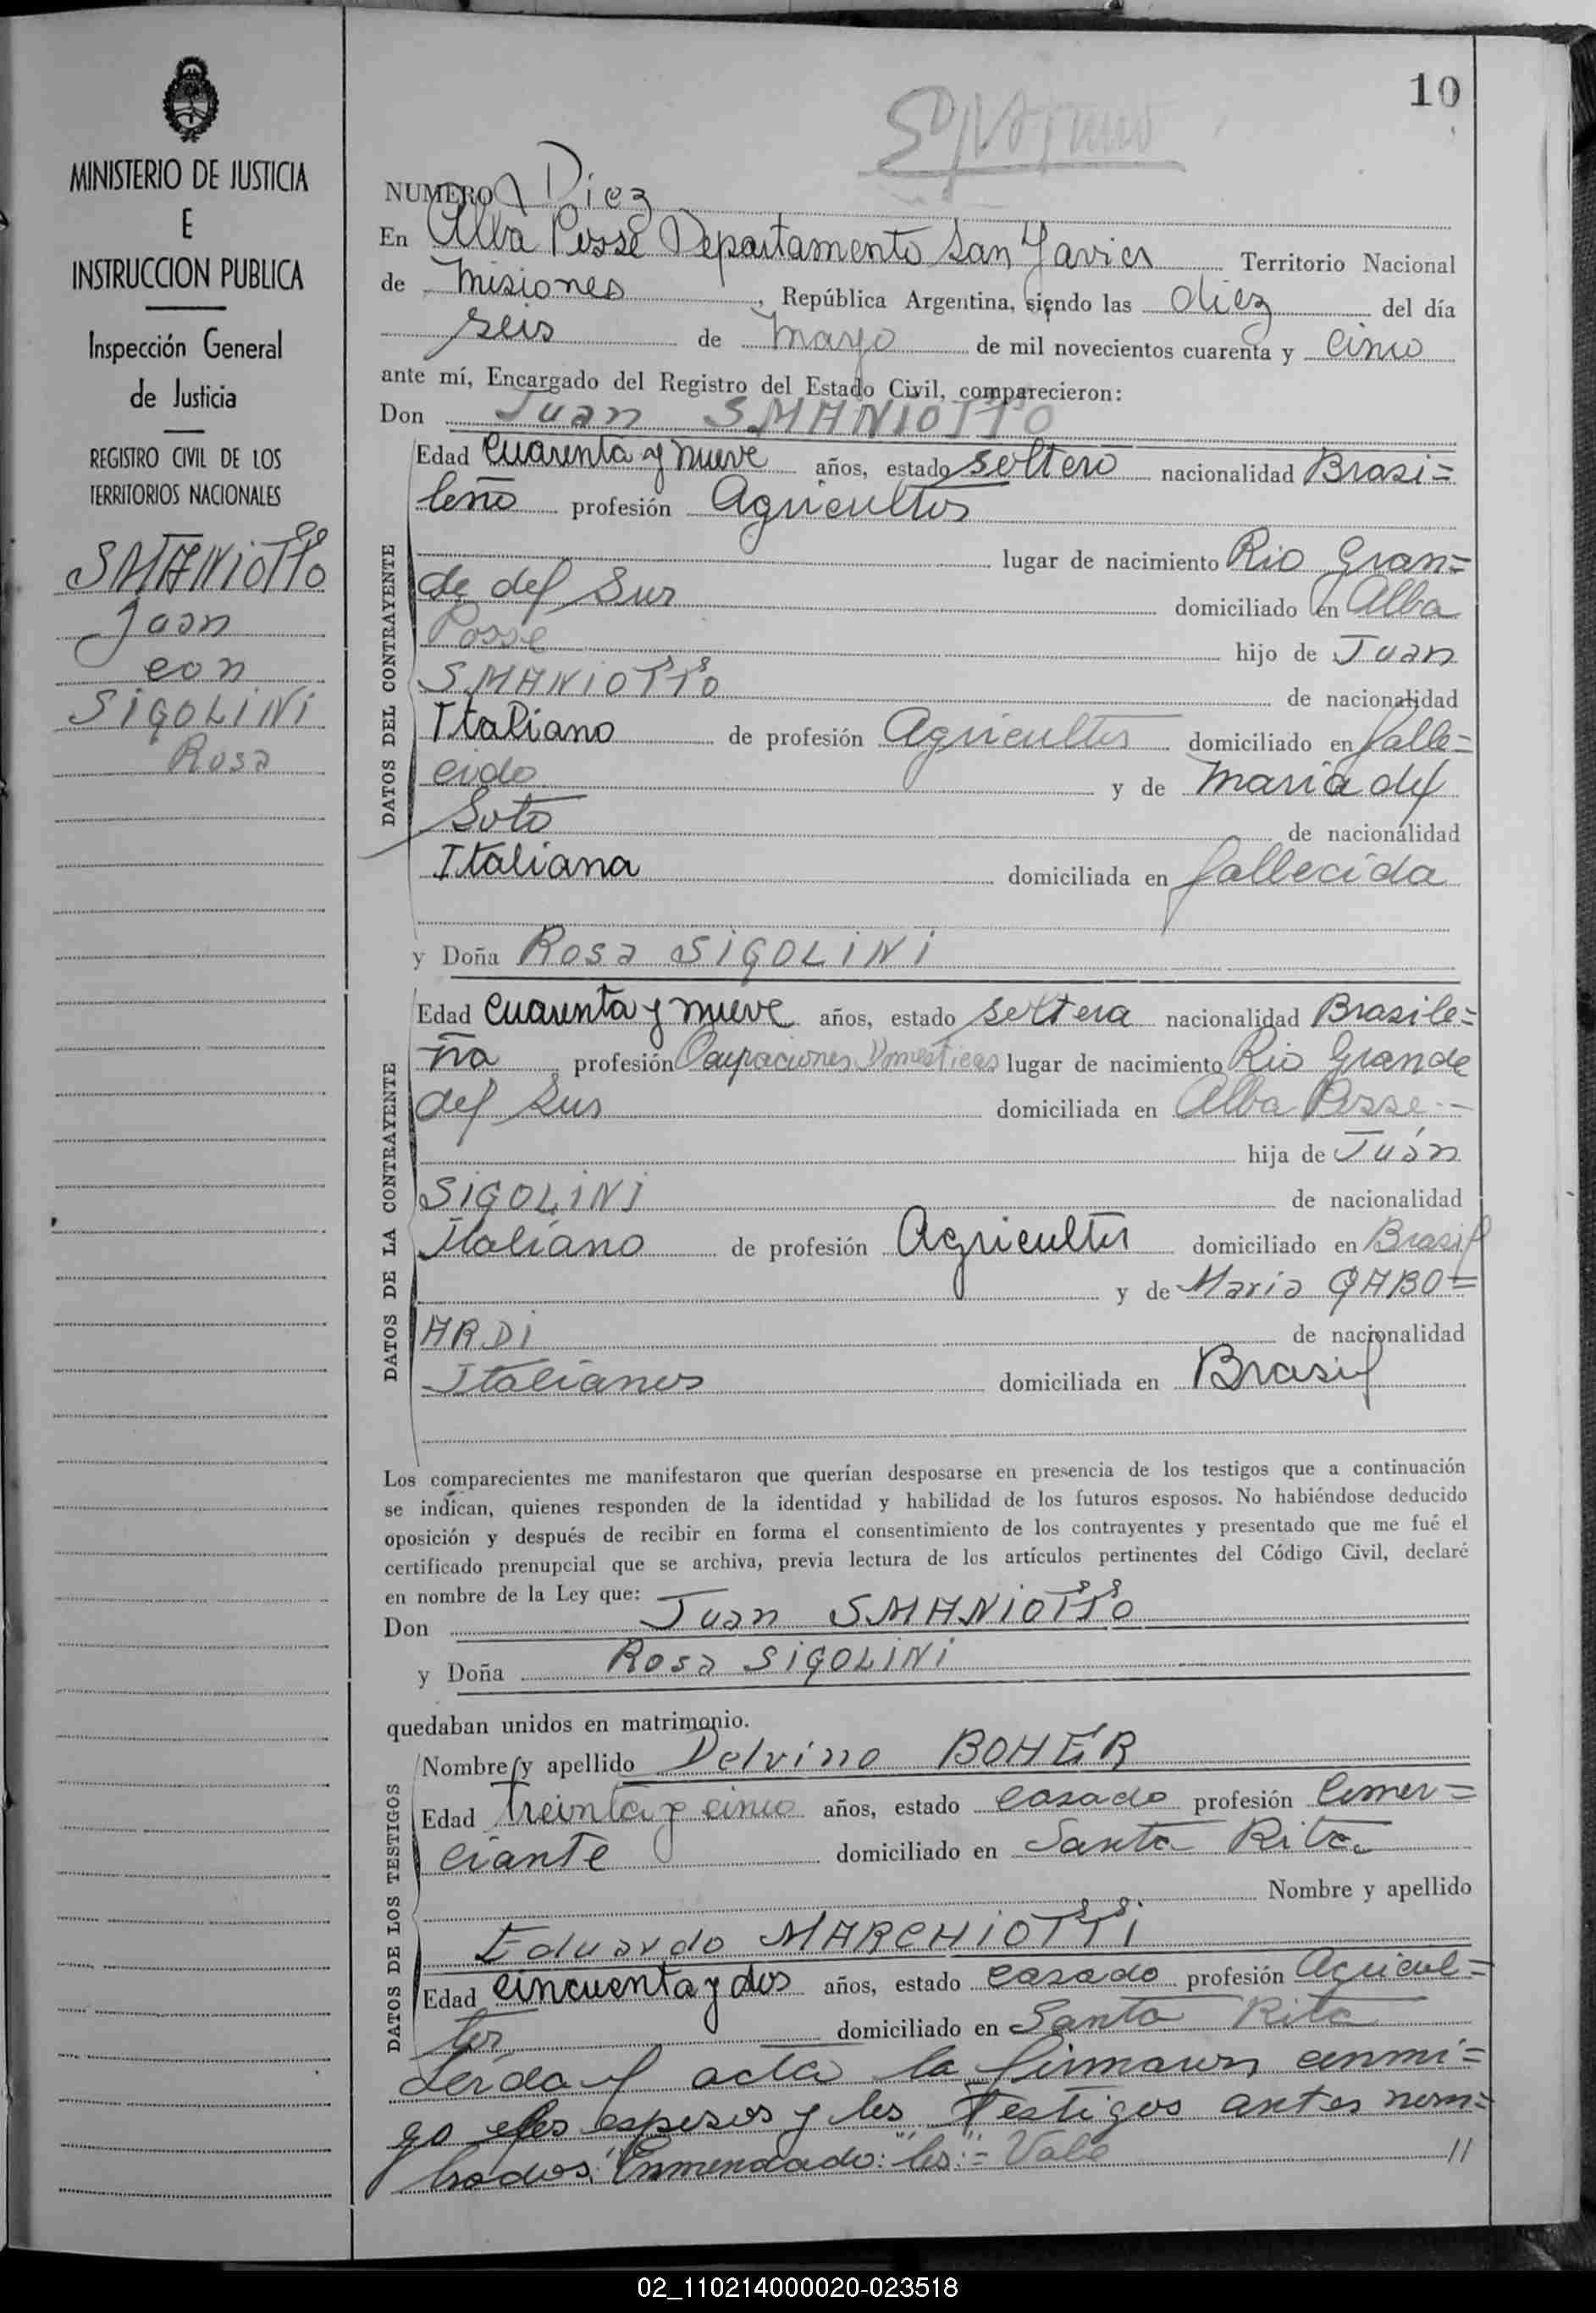 10
MINISTERIO DE JUSTICIA
E
INSTRUCCION PUBLICA
Inspección General
de Justicia
REGISTRO CIVIL DE LOS
TERRITORIOS NACIONALES
SMANIOTTO
Juan
con
SIGOLINI
Rosa
NUMERO Diez
En Alba Posse Departamento San Javier Territorio Nacional
de Misiones, República Argentina, siendo las diez del día
seis de mayo de mil novecientos cuarenta y cinco
ante mí, Encargado del Registro del Estado Civil, comparecieron:
Don Juan SMANIOTTO
DATOS DEL CONTRAYENTE
Edad cuarenta y nueve años, estado soltero nacionalidad Brasi=
leño profesión Agricultor
lugar de nacimiento Rio Gran=
de del Sur domiciliado en Alba
Posse hijo de Juan
SMANIOTTO de nacionalidad
Italiano de profesión Agricultor domiciliado en falle=
cido y de Maria del
Soto de nacionalidad
Italiana domiciliada en fallecida
y Doña Rosa SIGOLINI
DATOS DE LA CONTRAYENTE
Edad cuarenta y nueve años, estado soltera nacionalidad Brasile=
ña profesión Ocupaciones Domesticas lugar de nacimiento Rio Grande
del Sur domiciliada en Alba Posse--
hija de Juán
SIGOLINI de nacionalidad
Italiano de profesión Agricultor domiciliado en Brasil
y de Maria GABO=
ARDI de nacionalidad
Italianos domiciliada en Brasil
Los comparecientes me manifestaron que querían desposarse en presencia de los testigos que a continuación
se indican, quienes responden de la identidad y habilidad de los futuros esposos. No habiéndose deducido
oposición y después de recibir en forma el consentimiento de los contrayentes y presentado que me fué el
certificado prenupcial que se archiva, previa lectura de los artículos pertinentes del Código Civil, declaré
en nombre de la Ley que:
Don Juan SMANIOTTO
y Doña Rosa SIGOLINI
quedaban unidos en matrimonio.
DATOS DE LOS TESTIGOS
Nombre y apellido Delvino BOHER
Edad treinta y cinco años, estado casado profesión Comer=
ciante domiciliado en Santa Rita
Nombre y apellido
Eduardo MARCHIOTTI
Edad cincuenta y dos años, estado casado profesión Agricul=
tor domiciliado en Santa Rita
Leída el acta la firmaron conmi=
go los esposos y los Testigos antes nom=
brados. Enmendado: "los":= Vale //
02_110214000020-023518